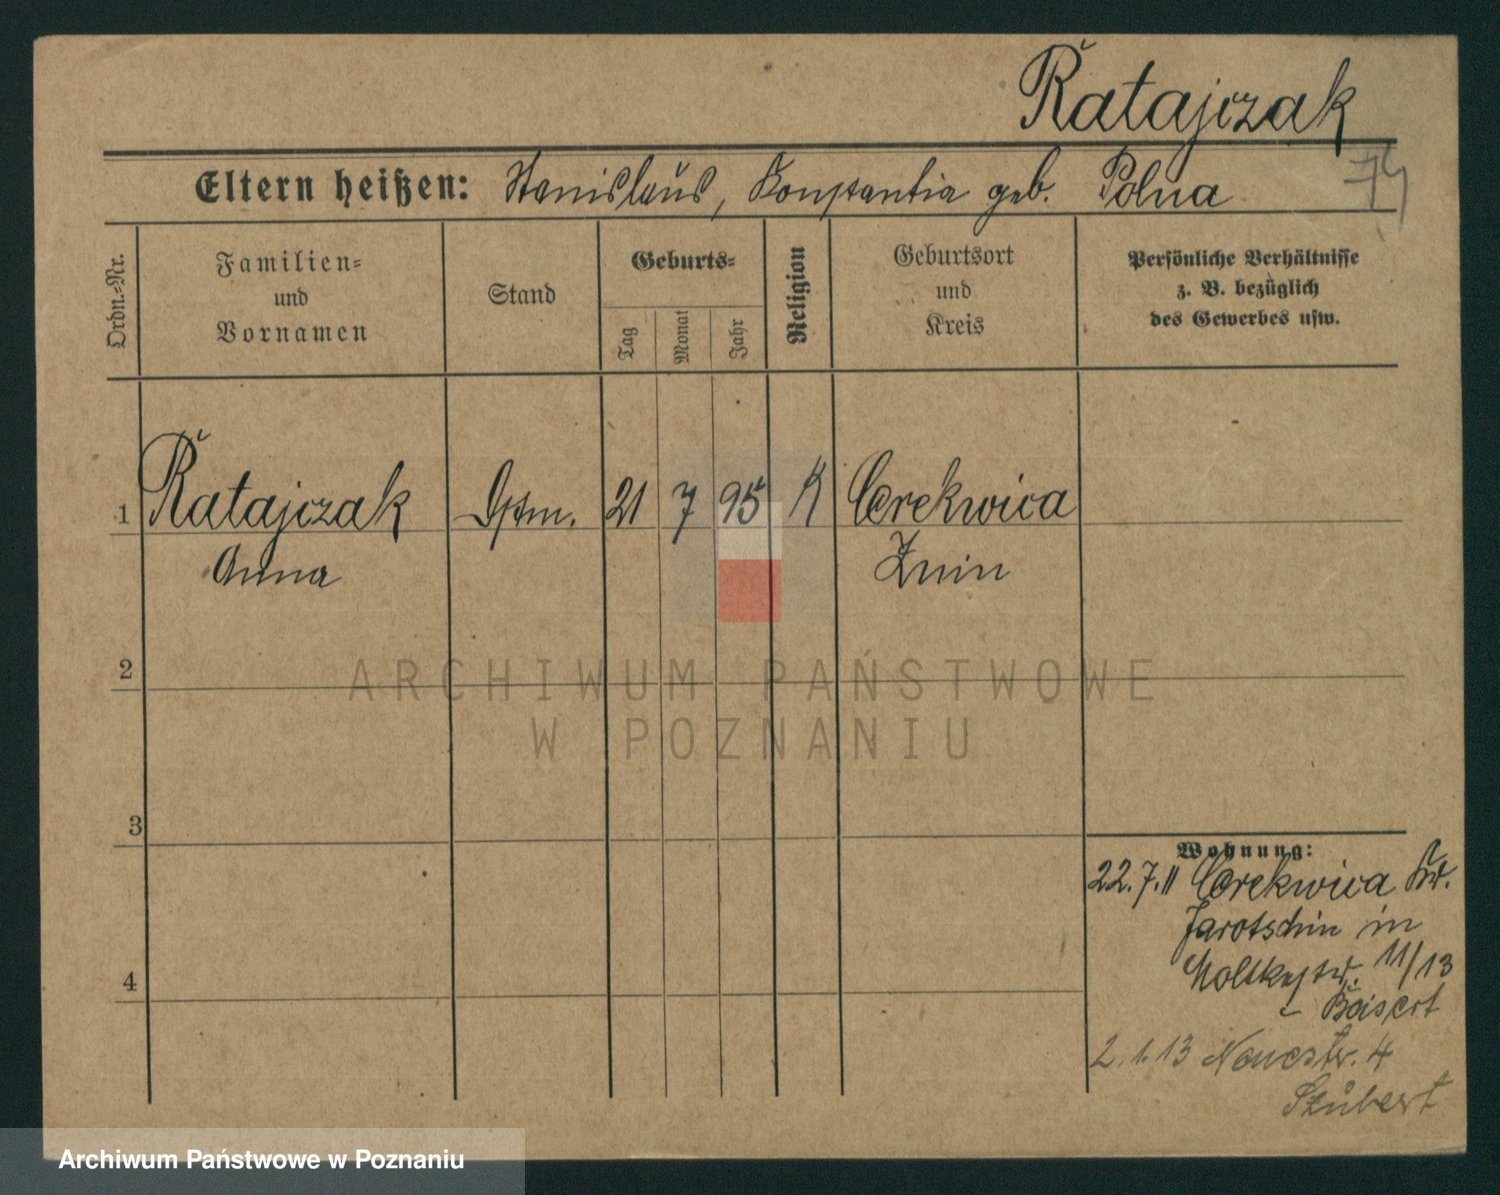 Ratajczak
Eltern heißen: Stanislaus, Konstantia geb. Polna
74
Ordn.=Nr.
Familien=
und
Vornamen
Stand
Geburts=
Tag
Monat
Jahr
Religion
Geburtsort
und
Kreis
Persönliche Verhältnisse
z. B. bezüglich
des Gewerbes usw.
1 Ratajczak 21 7 95 K Cerekwica
Anna Znin
2
3
4
Wohnung:
22.7.11 Cerekwica Kr.
Jarotschin in
Moltkestr. 11/13
2.1.13
ARCHIWUM PAŃSTWOWE
W POZNANIU
Archiwum Państwowe w Poznaniu